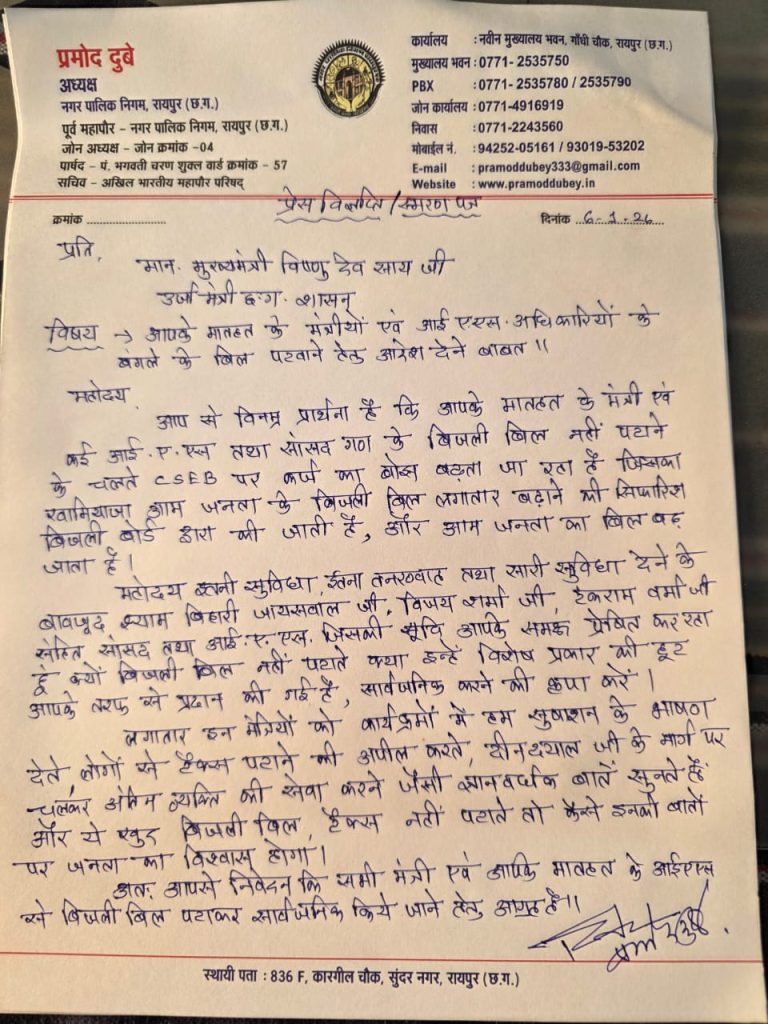 प्रमोद दुबे
अध्यक्ष
नगर पालिक निगम, रायपुर (छ.ग.)
पूर्व महापौर – नगर पालिक निगम, रायपुर (छ.ग.)
जोन अध्यक्ष – जोन क्रमांक -04
पार्षद – पं. भगवती चरण शुक्ल वार्ड क्रमांक - 57
सचिव – अखिल भारतीय महापौर परिषद्
कार्यालय : नवीन मुख्यालय भवन, गाँधी चौक, रायपुर (छ.ग.)
मुख्यालय भवन : 0771- 2535750
PBX : 0771- 2535780 / 2535790
जोन कार्यालय : 0771-4916919
निवास : 0771-2243560
मोबाईल नं. : 94252-05161 / 93019-53202
E-mail : pramoddubey333@gmail.com
Website : www.pramoddubey.in
प्रेस विज्ञप्ति / स्मरण पत्र
क्रमांक ........................ दिनांक ..6-1-26....
प्रति,
मान. मुख्यमंत्री विष्णु देव साय जी
उर्जा मंत्री छ.ग. शासन
विषय → आपके मातहत के मंत्रीयों एवं आई.ए.एस. अधिकारियों के
बंगले के बिल पटवाने हेतु आदेश देने बाबत ॥
महोदय,
आप से विनम्र प्रार्थना है कि आपके मातहत के मंत्री एवं
कई आई.ए.एस तथा सांसद गण के बिजली बिल नहीं पटाने
के चलते CSEB पर कर्ज का बोझ बढ़ता जा रहा है जिसका
खामियाजा आम जनता के बिजली बिल लगातार बढ़ाने की सिफारिश
बिजली बोर्ड द्वारा की जाती है, और आम जनता का बिल बढ़
जाता है।
महोदय इतनी सुविधा, इतना तनख्वाह तथा सारी सुविधा देने के
बावजूद श्याम बिहारी जायसवाल जी, विजय शर्मा जी, टंकराम वर्मा जी
सहित सांसद तथा आई.ए.एस. जिसकी सूचि आपके समक्ष प्रेषित कर रहा
हूं क्यों बिजली बिल नहीं पटाते क्या इन्हें विशेष प्रकार की छूट
आपके तरफ से प्रदान की गई है, सार्वजनिक करने की कृपा करें।
लगातार इन मंत्रियों को कार्यक्रमों में हम सुशासन के भाषण
देते, लोगों से टैक्स पटाने की अपील करते, दीनदयाल जी के मार्ग पर
चलकर अंतिम व्यक्ति की सेवा करने जैसी ज्ञानवर्धक बातें सुनते हैं
और ये खुद बिजली बिल, टैक्स नहीं पटाते तो कैसे इनकी बातों
पर जनता का विश्वास होगा।
अतः आपसे निवेदन कि सभी मंत्री एवं आपके मातहत के आईएएस
से बिजली बिल पटाकर सार्वजनिक किये जाने हेतु आग्रह है॥
स्थायी पता : 836 F, कारगील चौक, सुंदर नगर, रायपुर (छ.ग.)